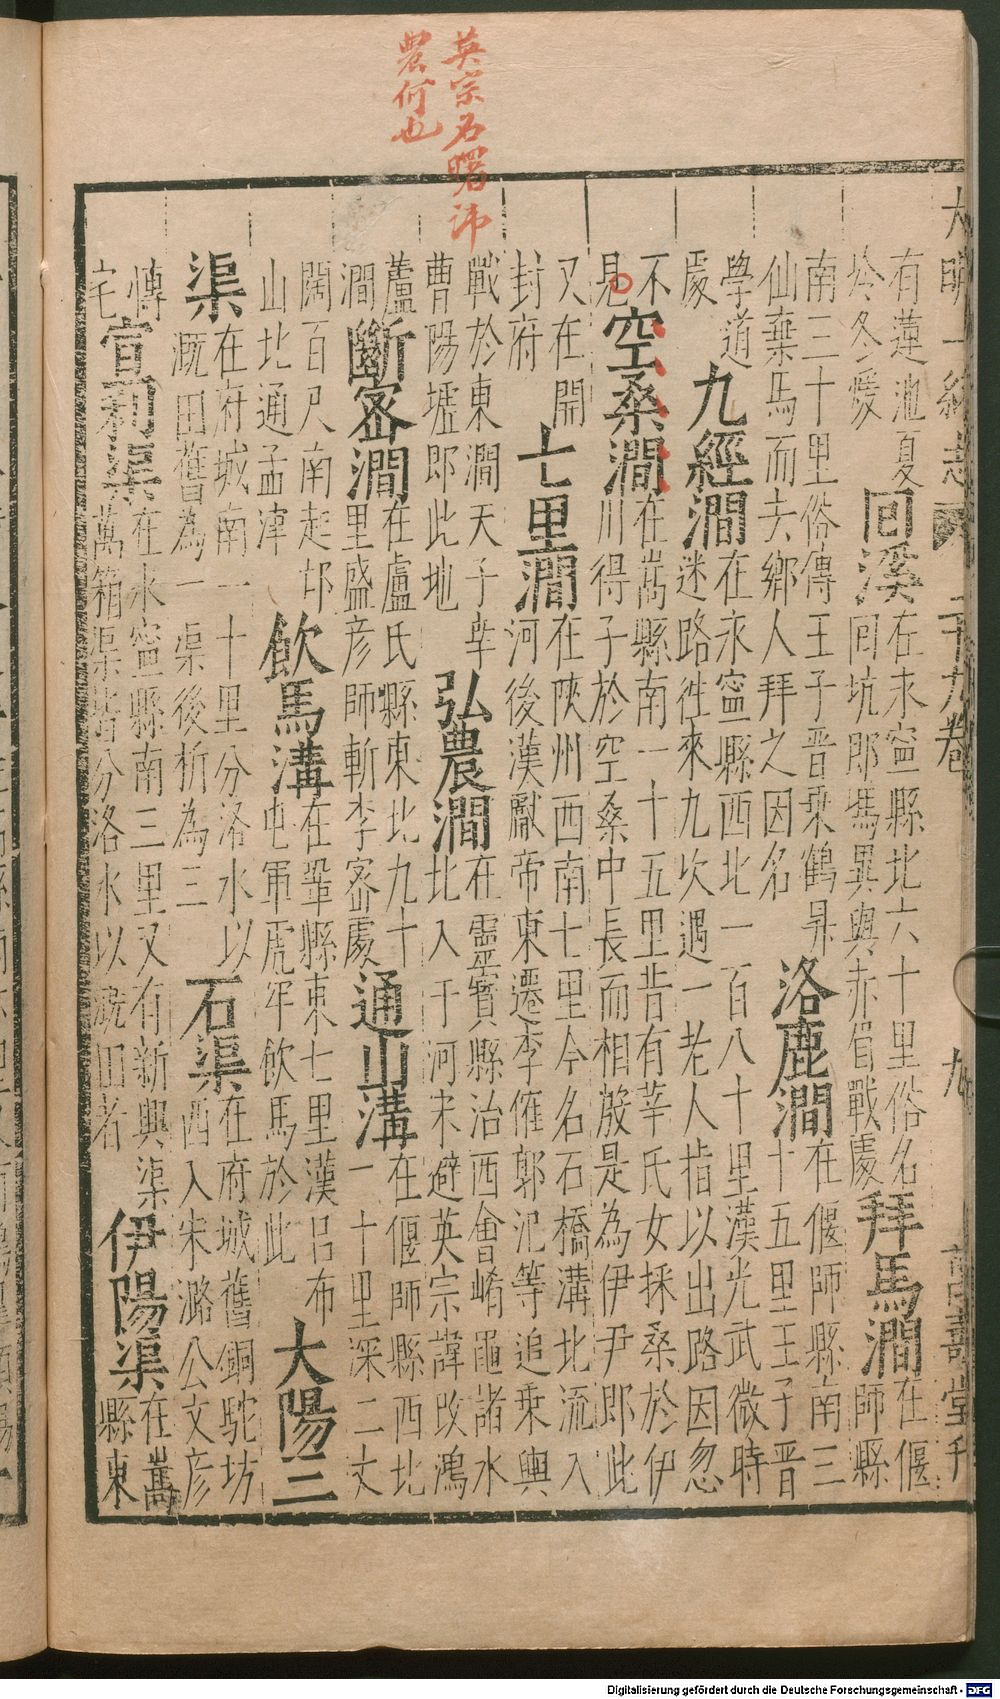 英宗名曙諱
農何也
大明一統志 二十九卷 九 萬壽堂刊
有蓮池夏
冷冬煖
回溪
在永寧縣北六十里俗名
回坑即馮異與赤眉戰處
拜馬澗
在偃
師縣
南三十里俗傳王子晉乘鶴昇
仙棄馬而去鄉人拜之因名
洛鹿澗
在偃師縣南三
十五里王子晉
學道
處
九經澗
在永寧縣西北一百八十里漢光武微時
迷路徃來九坎遇一老人指以出路因忽
不
見
空桑澗
在嵩縣南一十五里昔有莘氏女採桑於伊
川得子於空桑中長而相殷是為伊尹即此
又在開
封府
七里澗
在陝州西南七里今名石橋溝北流入
河後漢獻帝東遷李傕郭汜等追乗輿
戰於東澗天子幸
曹陽墟即此地
弘農澗
在靈寳縣治西會崤黽諸水
北入于河宋避英宗諱改鴻
蘆
澗
斷密澗
在盧氏縣東北九十
里盛彦師斬李密處
通山溝
在偃師縣西北
一十里深二丈
闊百尺南起邙
山北通孟津
飲馬溝
在鞏縣東七里漢吕布
屯軍虎牢飲馬於此
大陽三
渠
在府城南一十里分洛水以
溉田舊為一渠後析為三
石渠
在府城舊銅駝坊
西入宋潞公文彦
博
宅
宣利渠
在永寧縣南三里又有新興渠
萬箱渠皆分洛水以溉田者
伊陽渠
在嵩
縣東
Digitalisierung gefördert durch die Deutsche Forschungsgemeinschaft - DFG